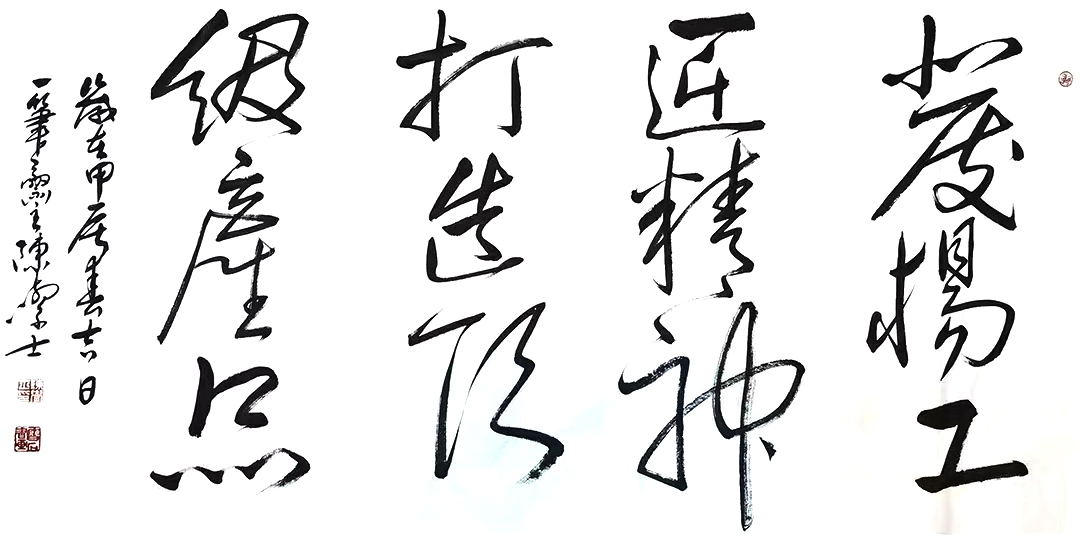 發揚工
匠精神
打造頂
級產品
歲在甲辰春吉日
一筆 主陳 士